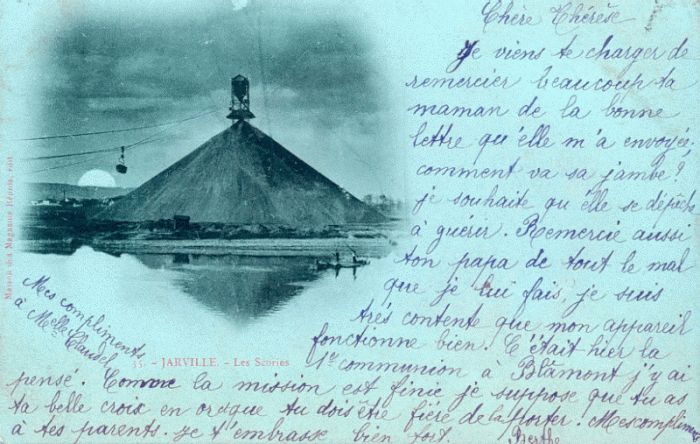 Chère Thérèse
Je viens te charger de
remercier beaucoup ta
maman de la bonne
lettre qu'elle m'a envoyée;
comment va sa jambe?
je souhaite qu'elle se dépêche
à guérir. Remercie aussi
ton papa de tout le mal
que je lui fais, je suis
très contente que mon appareil
fonctionne bien. C'était hier la
1re communion à Blâmont j'y ai
pensé. Comme la mission est finie je suppose que tu as
ta belle croix en or que tu dois être fière de la porter. Mes complim
à tes parents. Je t'embrasse bien fort. Berthe
Mes compliments
à Melle Claudel
35. - JARVILLE. - Les Scories
Maison des Magasins Réunis, édit.